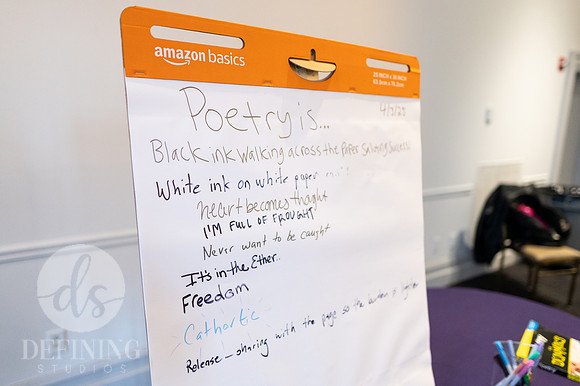 amazon basics
25 INCH x 30 INCH
63.5cm x 76.2cm
Poetry is...
4/2/25
Black ink walking across the paper
White ink on white paper
heart becomes thought
I'M FULL OF FROUGHT
Never want to be caught
It's in the Ether..
Freedom
Cathortic
Release - sharing with the page so the burden is lighter
ds
DEFINING
STUDIOS